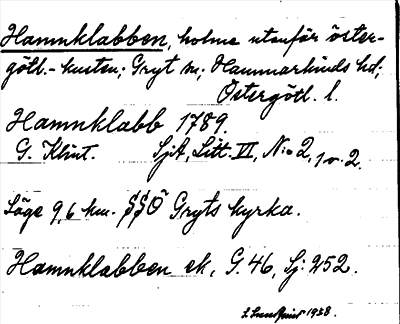 Hamnklabben, holme utanför öster-
götl.-kusten; Gryt sn; Hammarkinds hd;
Östergötl. l.
Hamnklabb 1789.
G. Klint. SjA, Litt. VI, N:o 2, 1 o. 2.
Läge 9,6 km. SSO Gryts kyrka.
Hamnklabben ek, G. 46, Sj: 252.
1938